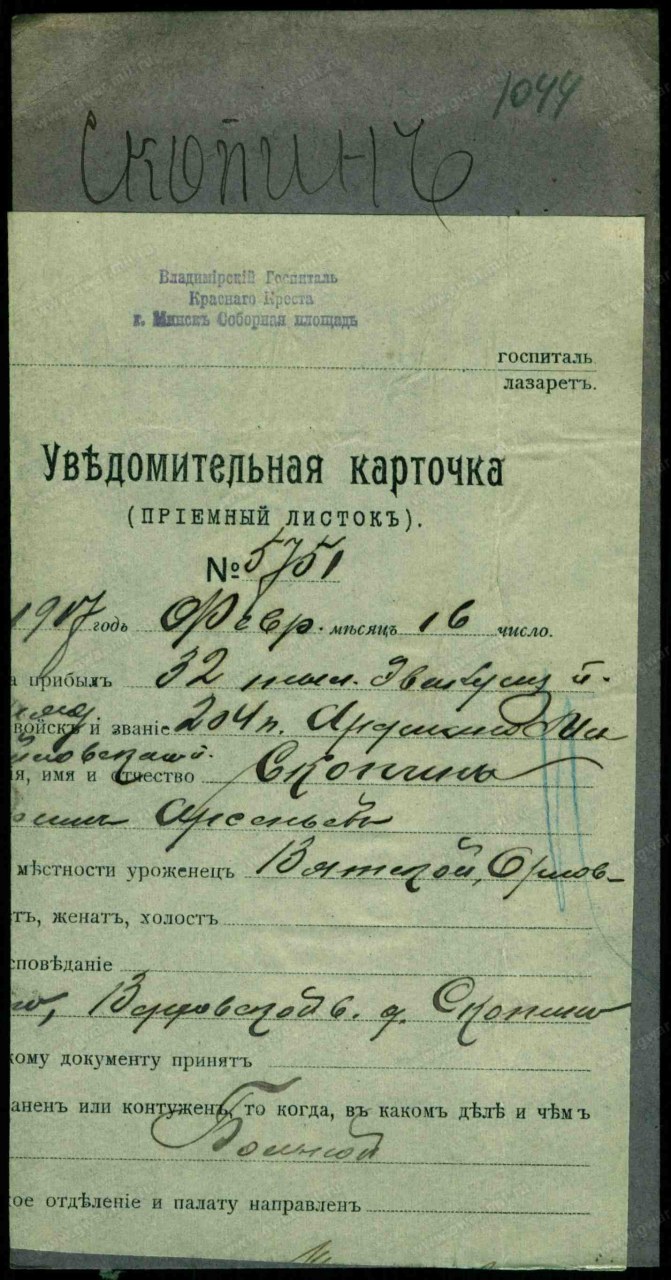 1044
Скопинъ
Владимірскій Госпиталь
Краснаго Креста
г. Минскъ Соборная площадь
госпиталь
лазаретъ.
Увѣдомительная карточка
(ПРІЕМНЫЙ ЛИСТОКЪ).
№ 5751
1917 годъ Февр. мѣсяцъ 16 число.
а прибылъ 32 тыл. Эвакуац п.
войскъ и званіе 204 п. Ардагано Ми
хайловскаго п.
ія, имя и отчество Скопинъ
Арсеньевъ
мѣстности уроженецъ Вятской, Орлов-
стъ, женатъ, холостъ
споведаніе
в. д. Скопино
кому документу принятъ
аненъ или контуженъ, то когда, въ какомъ дѣлѣ и чѣмъ
Больной
кое отдѣленіе и палату направленъ